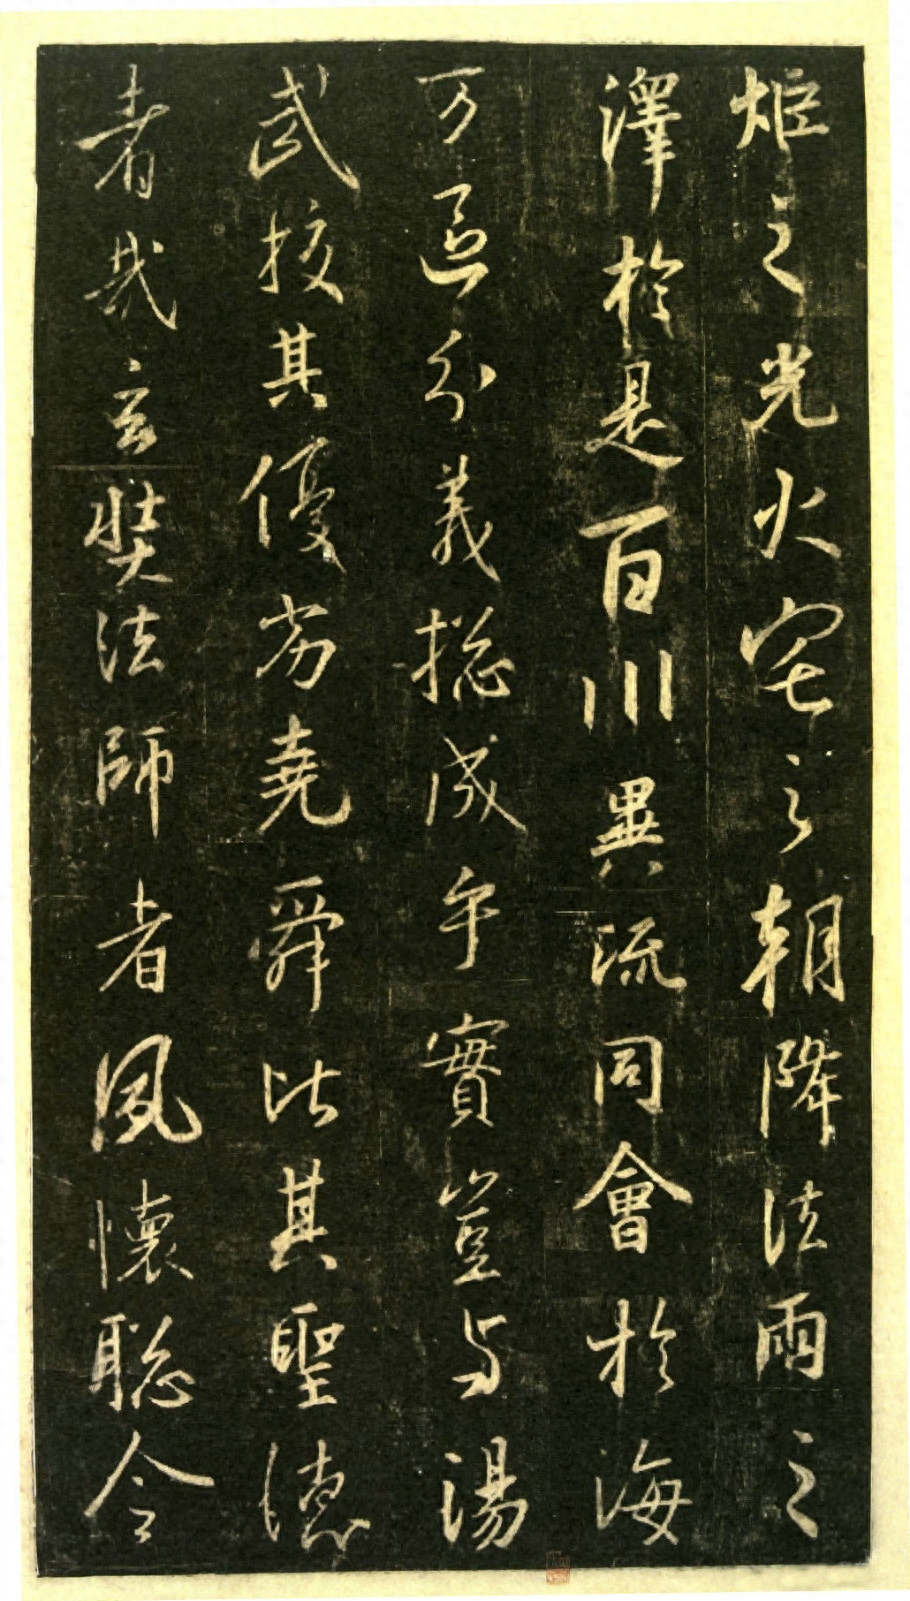 炬之光火宅之朝降法雨之
澤於是百川異流同會於海
万區分義捴成乎實豈与湯
武挍其優劣堯舜比其聖德
者哉玄奘法師者夙懷聡令